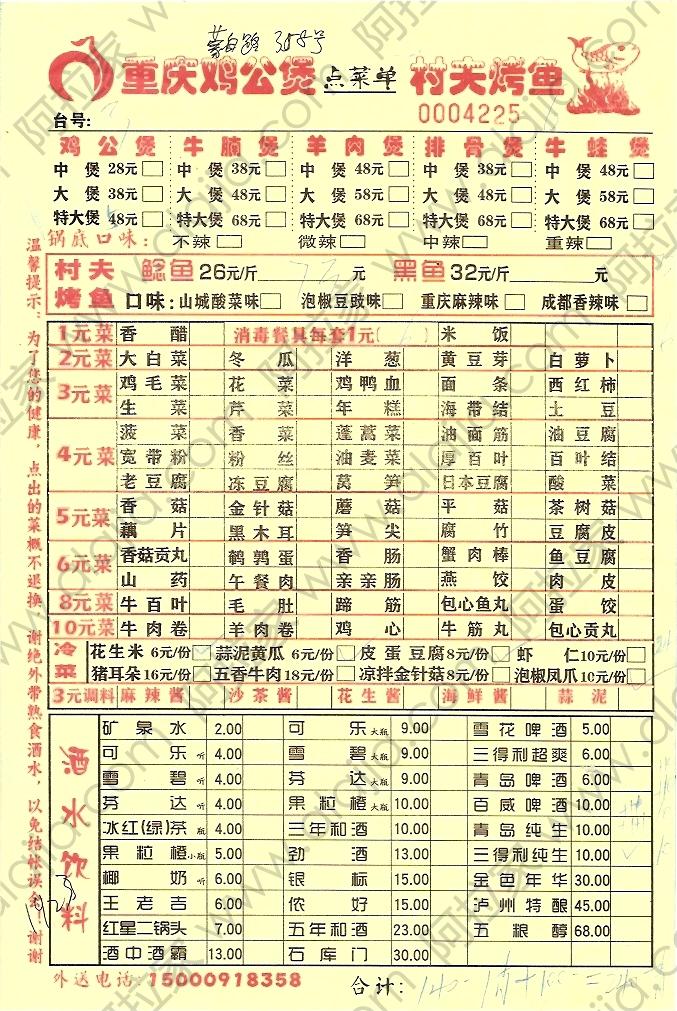 蒙自路 308号
重庆鸡公煲 点菜单 村夫烤鱼
台号: 0004225
鸡公煲 牛腩煲 羊肉煲 排骨煲 牛蛙煲
中煲 28元 中煲 38元 中煲 48元 中煲 38元 中煲 48元
大煲 38元 大煲 48元 大煲 58元 大煲 48元 大煲 58元
特大煲 48元 特大煲 68元 特大煲 68元 特大煲 68元 特大煲 68元
锅底口味: 不辣 微辣 中辣 重辣
村夫烤鱼 鲶鱼 26元/斤 元 黑鱼 32元/斤 元
口味: 山城酸菜味 泡椒豆豉味 重庆麻辣味 成都香辣味
1元菜 香醋 消毒餐具每套1元( ) 米饭
2元菜 大白菜 冬瓜 洋葱 黄豆芽 白萝卜
3元菜 鸡毛菜 花菜 鸡鸭血 面条 西红柿
生菜 芹菜 年糕 海带结 土豆
4元菜 菠菜 香菜 蓬蒿菜 油面筋 油豆腐
宽带粉 粉丝 油麦菜 厚百叶 百叶结
老豆腐 冻豆腐 莴笋 日本豆腐 酸菜
5元菜 香菇 金针菇 蘑菇 平菇 茶树菇
藕片 黑木耳 笋尖 腐竹 豆腐皮
6元菜 香菇贡丸 鹌鹑蛋 香肠 蟹肉棒 鱼豆腐
山药 午餐肉 亲亲肠 燕饺 肉皮
8元菜 牛百叶 毛肚 蹄筋 包心鱼丸 蛋饺
10元菜 牛肉卷 羊肉卷 鸡心 牛筋丸 包心贡丸
冷菜 花生米 6元/份 蒜泥黄瓜 6元/份 皮蛋豆腐 8元/份 虾仁 10元/份
猪耳朵 16元/份 五香牛肉 18元/份 凉拌金针菇 8元/份 泡椒凤爪 10元/份
3元调料 麻辣酱 沙茶酱 花生酱 海鲜酱 蒜泥
酒水饮料
矿泉水 2.00 可乐大瓶 9.00 雪花啤酒 5.00
可乐听 4.00 雪碧大瓶 9.00 三得利超爽 6.00
雪碧听 4.00 芬达大瓶 9.00 青岛啤酒 6.00
芬达听 4.00 果粒橙大瓶 10.00 百威啤酒 10.00
冰红(绿)茶瓶 4.00 三年和酒 10.00 青岛纯生 10.00
果粒橙小瓶 5.00 劲酒 13.00 三得利纯生 10.00
椰奶听 6.00 银标 15.00 金色年华 30.00
王老吉 6.00 侬好 15.00 泸州特酿 45.00
红星二锅头 7.00 五年和酒 23.00 五粮醇 68.00
酒中酒霸 13.00 石库门 30.00
外送电话:15000918358 合计:
温馨提示:为了您的健康,点出的菜概不退换 谢绝外带熟食酒水,以免结帐误会!谢谢
阿拉家 www.alajia.com